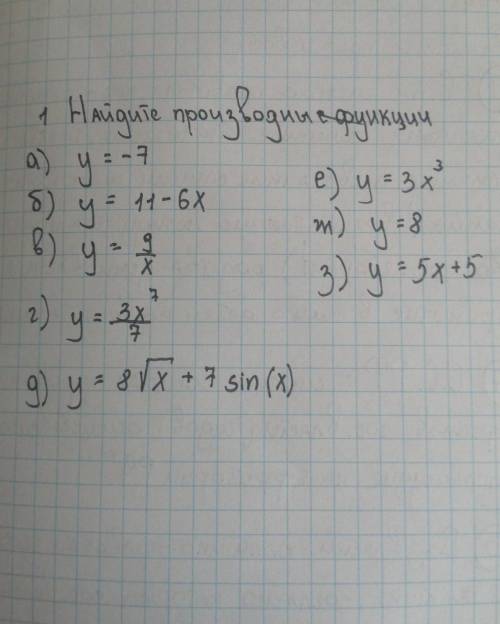 1 Найдите производные функции
а) y = -7
б) y = 11 - 6x
в) y = 9/x
г) y = 3x⁷/7
д) y = 8√x + 7 sin(x)
е) y = 3x³
ж) y = 8
з) y = 5x + 5